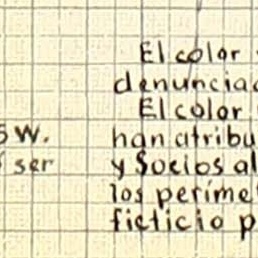 El color
denunciad
El color
5 W.
han atribu
ser
y Socios al
los períme
ficticio p